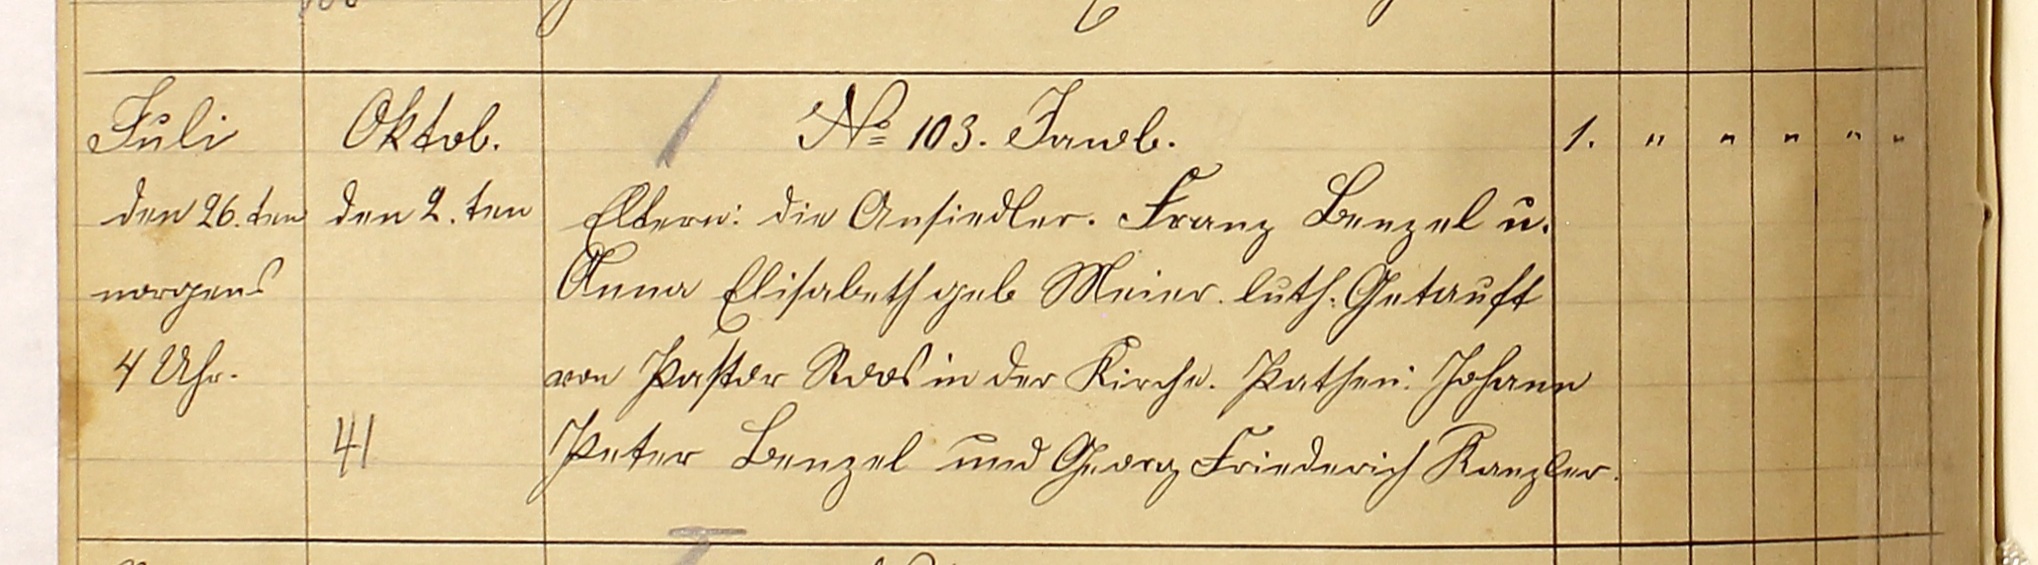 Juli Oktob. № 103. Jacob. 1. " " " " "
den 26. ten den 2. ten Eltern: die Ansiedler. Franz Benzel u.
morgens Anna Elisabeth geb Meier. luth. Getauft
4 Uhr. von Pastor Roos in der Kirche. Pathen: Johann
41 Peter Benzel und Georg Friederich Kanzler.